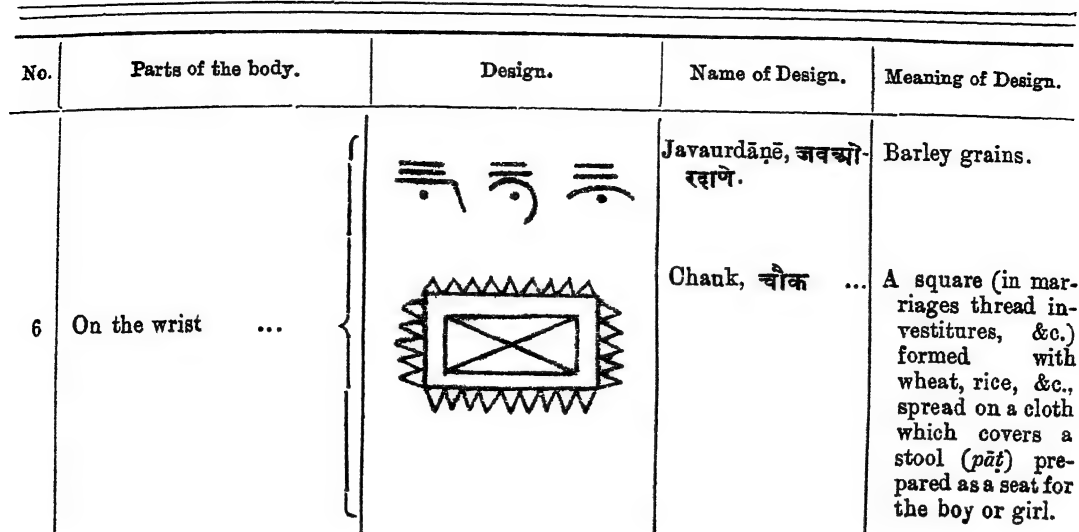 No.
Parts of the body.
Design.
Name of Design.
Meaning of Design.
6
On the wrist ...
Javaurdāṇē, जवऔ-
रदाणे.
Barley grains.
Chauk, चौक ...
A square (in mar-
riages thread in-
vestitures, &c.)
formed with
wheat, rice, &c.,
spread on a cloth
which covers a
stool (pāṭ) pre-
pared as a seat for
the boy or girl.